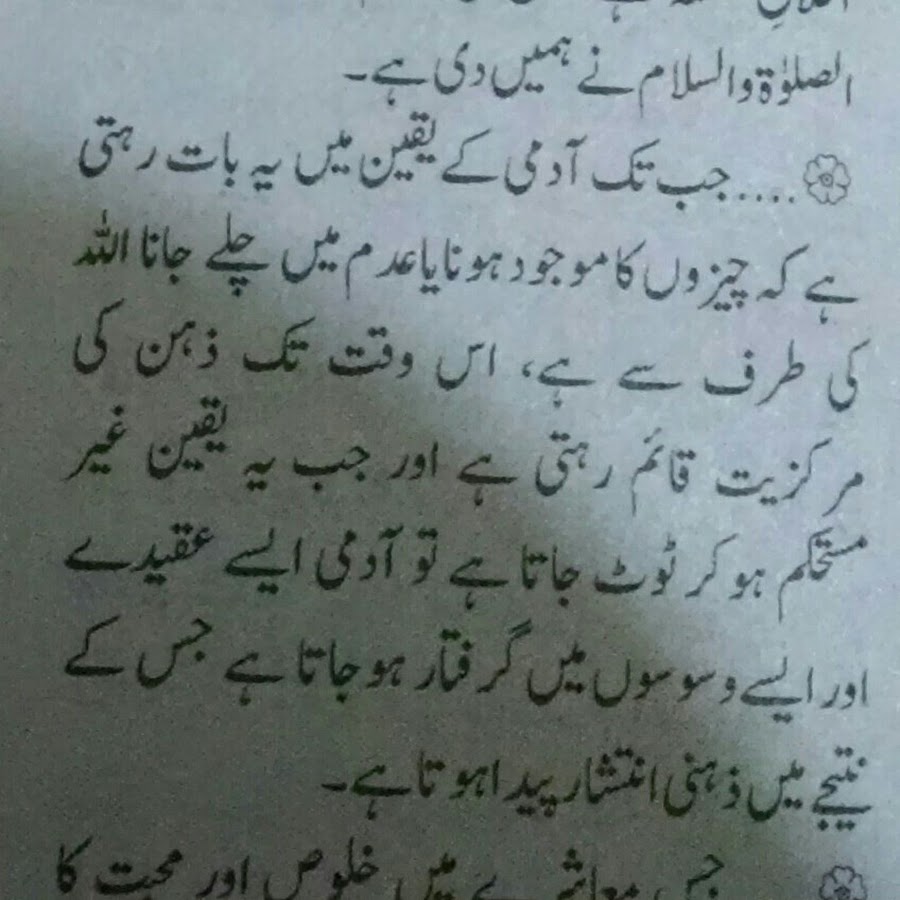 الصلوٰۃ والسلام نے ہمیں دی ہے۔
....جب تک آدمی کے یقین میں یہ بات رہتی
ہے کہ چیزوں کا موجود ہونا یا عدم میں چلے جانا اللہ
کی طرف سے ہے، اس وقت تک ذہن کی
مرکزیت قائم رہتی ہے اور جب یہ یقین غیر
مستحکم ہو کر ٹوٹ جاتا ہے تو آدمی ایسے عقیدے
اور ایسے وسوسوں میں گرفتار ہو جاتا ہے جس کے
نتیجے میں ذہنی انتشار پیدا ہوتا ہے۔
جس معاشرے میں خلوص اور محبت کا